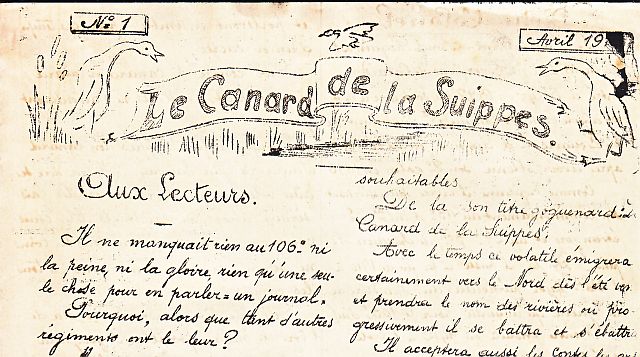 No 1
Avril 19
Le Canard de la Suippes.
Aux Lecteurs.
Il ne manquait rien au 106e ni
la peine, ni la gloire, rien qu'une seu-
le chose pour en parler = un journal.
Pourquoi, alors que tant d'autres
régiments ont le leur?
souhaitables
De la son titre goguenard: Le
Canard de la Suippes.
Avec le temps ce volatile émigrera
certainement vers le Nord dès l'été
et prendra le nom des rivières où pro-
gressivement il se battra et s'ébattra
Il acceptera aussi les